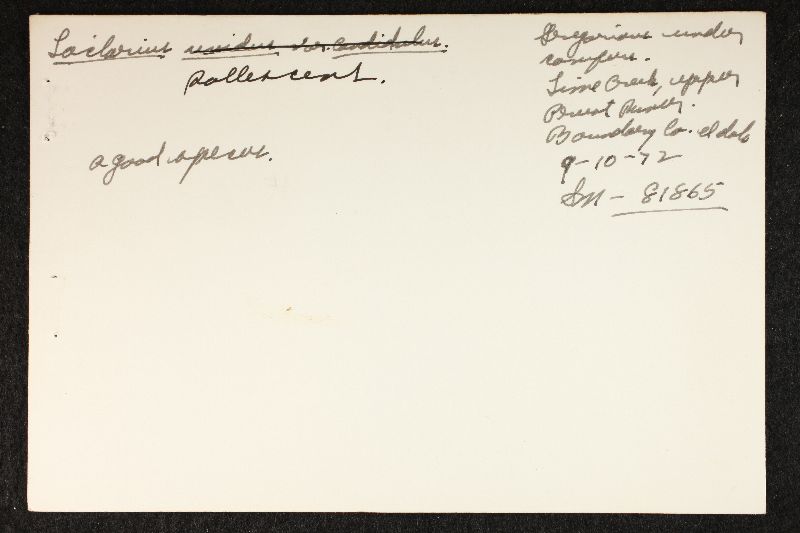 Lactarius uvidus var. candidulus.
pallescens.
a good species.
Gregarious under
conifers.
Lime Creek, upper
Priest River.
Boundary Co. Idaho
9-10-72
Sm - 81865